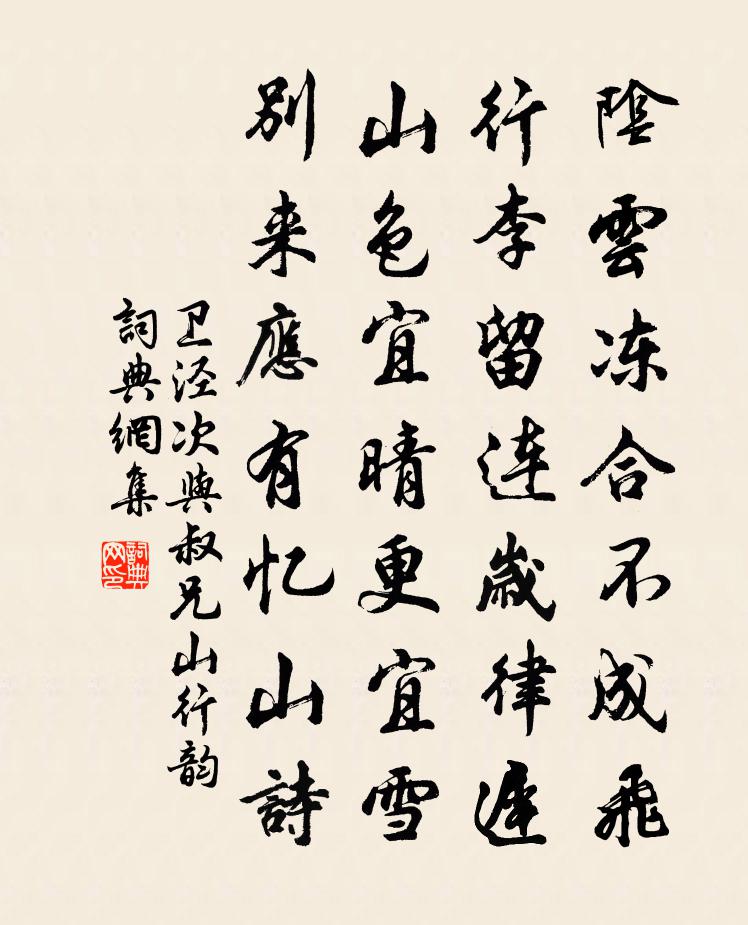 陰雲冻合不成飛
行李留连歲律遲
山色宜晴更宜雪
别来應有忆山詩
卫泾次與叔兄山行韵
詞典網集
詞典網印